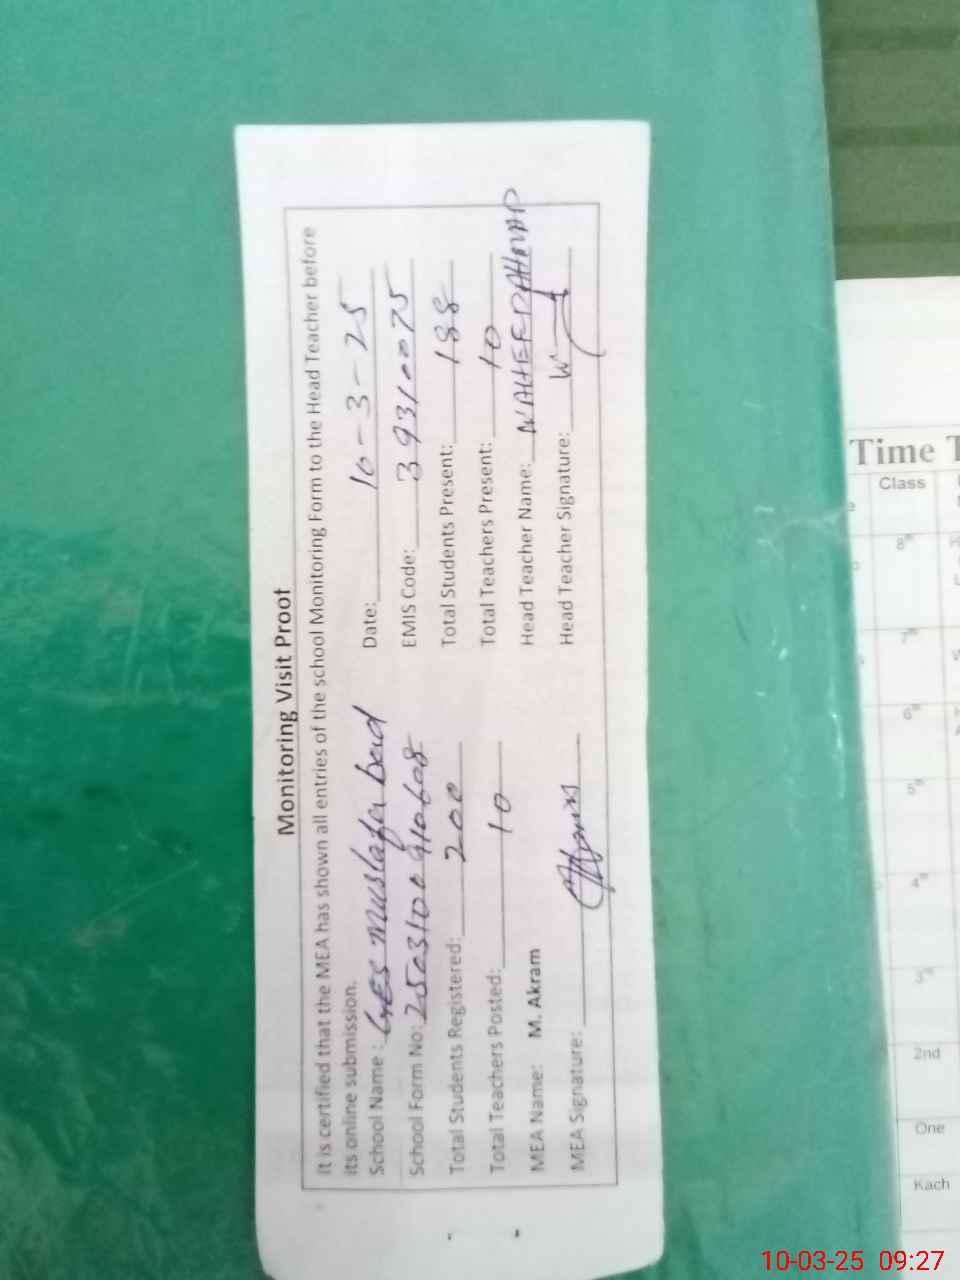 Monitoring Visit Proof
It is certified that the MEA has shown all entries of the school Monitoring Form to the Head Teacher before
its online submission.
School Name : GES Mustafa bad Date: 10-3-25
School Form No: 2503100910608 EMIS Code: 39310075
Total Students Registered: 200 Total Students Present: 188
Total Teachers Posted: 10 Total Teachers Present: 10
MEA Name: M. Akram Head Teacher Name: WAHEED AHMAD
MEA Signature: Head Teacher Signature:
Time T
Class
8th
7th
6th
5th
4th
3rd
2nd
One
Kach
10-03-25 09:27